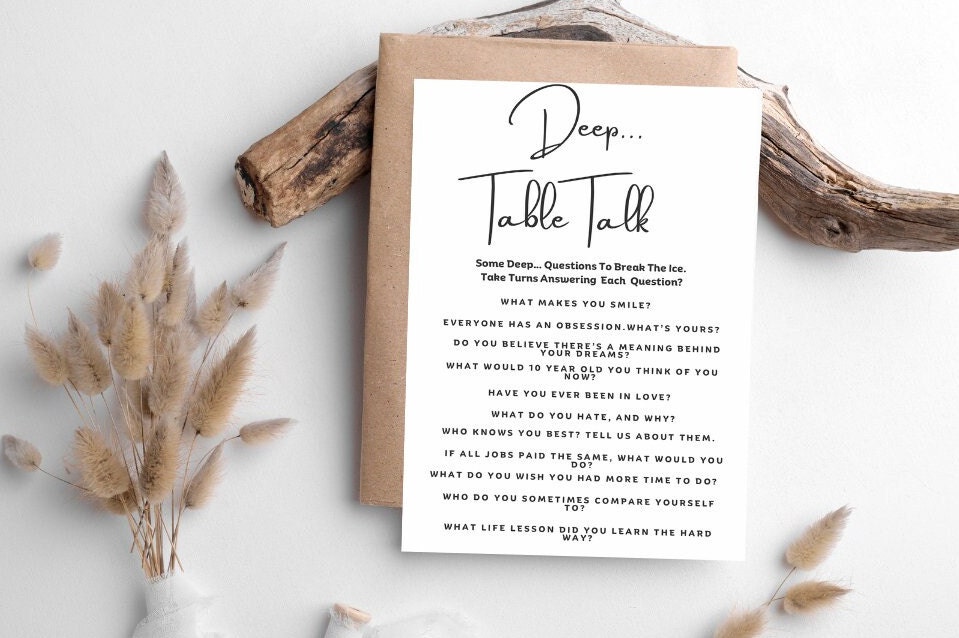 Deep...
Table Talk
Some Deep... Questions To Break The Ice.
Take Turns Answering Each Question?
WHAT MAKES YOU SMILE?
EVERYONE HAS AN OBSESSION.WHAT'S YOURS?
DO YOU BELIEVE THERE'S A MEANING BEHIND
YOUR DREAMS?
WHAT WOULD 10 YEAR OLD YOU THINK OF YOU
NOW?
HAVE YOU EVER BEEN IN LOVE?
WHAT DO YOU HATE, AND WHY?
WHO KNOWS YOU BEST? TELL US ABOUT THEM.
IF ALL JOBS PAID THE SAME, WHAT WOULD YOU
DO?
WHAT DO YOU WISH YOU HAD MORE TIME TO DO?
WHO DO YOU SOMETIMES COMPARE YOURSELF
TO?
WHAT LIFE LESSON DID YOU LEARN THE HARD
WAY?